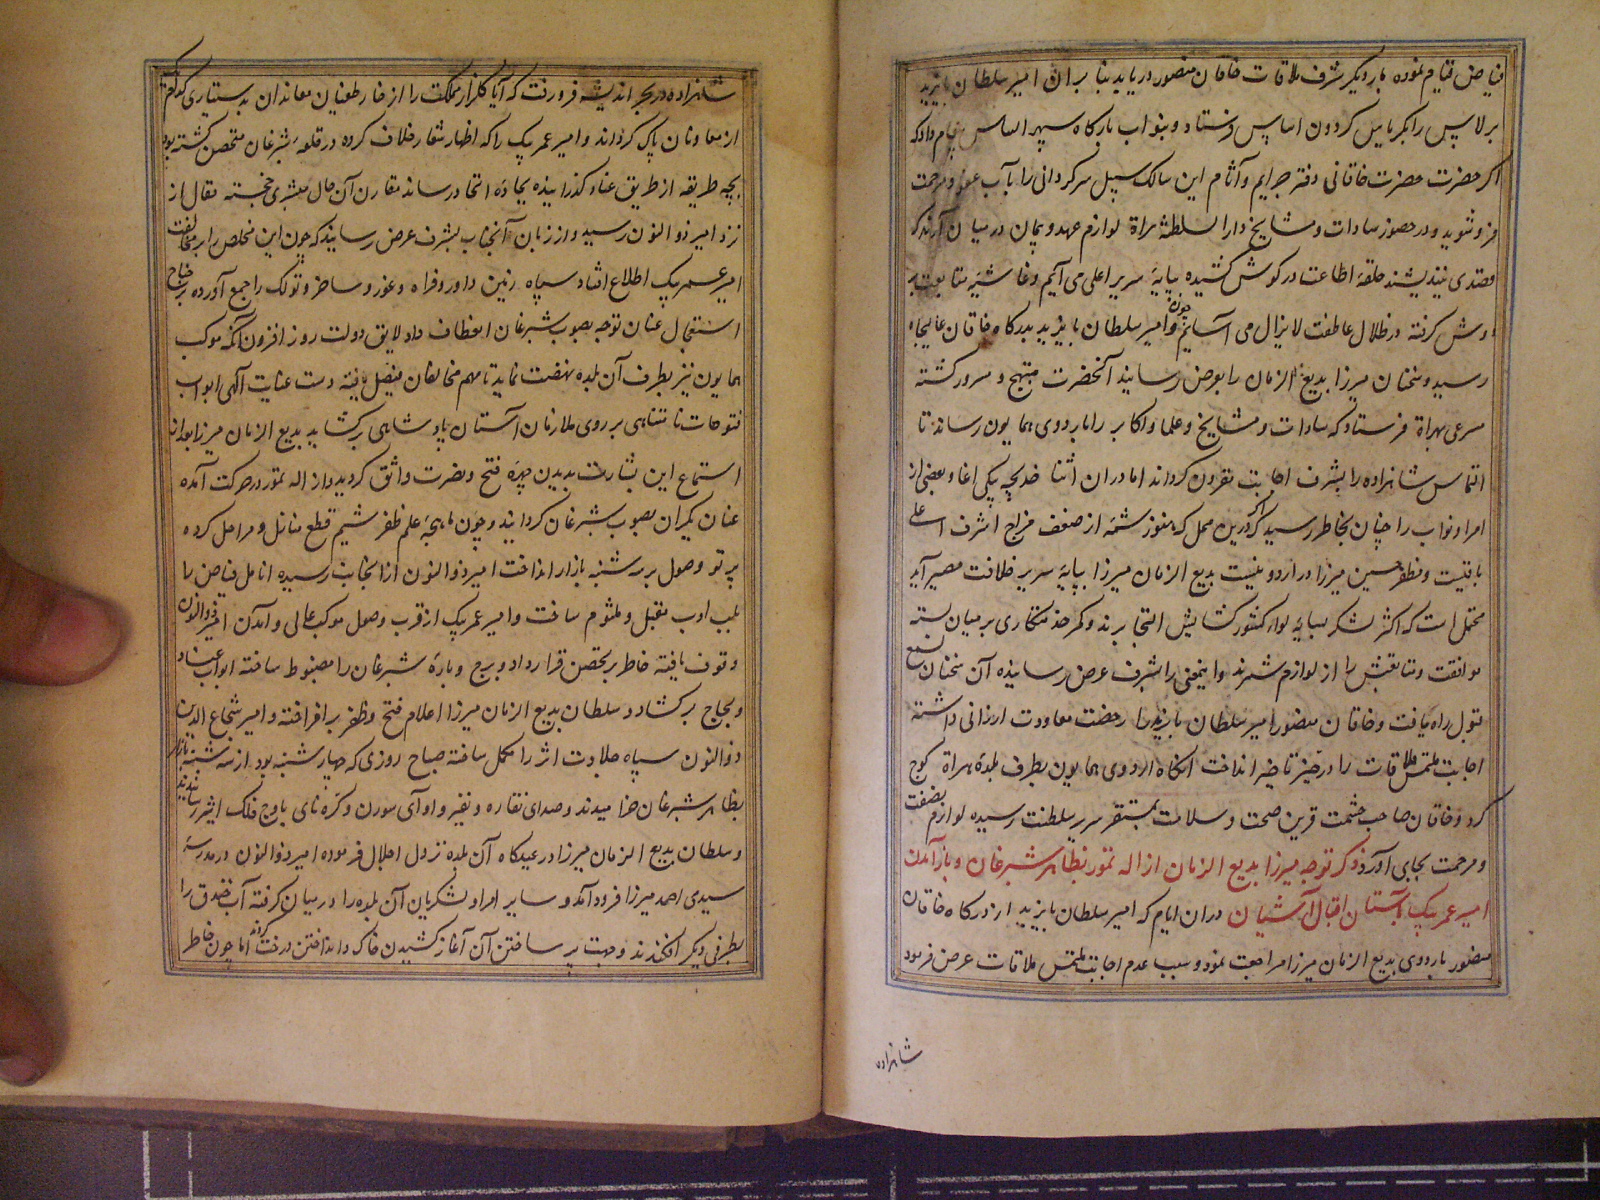 فیاض قیام نموده بار دیگر شرف ملاقات خاقان منصور دریابد بنا بر آن امیر سلطان بایزید
برلاس را بکریاس گردون اساس فرستاد و بنواب بارگاه سپهر التماس پیغام داد که
اگر حضرت خاقانی دفتر جرایم و آثام این سالک سبیل سرگردانی را بآب عفو و مرحمت
فرو شوید و در حضور سادات و مشایخ دار السلطنه هراة لوازم عهد و پیمان در میان آرند که
قصدی نیندیشند حلقه اطاعت در گوش کشیده بپایه سریر اعلی می آئیم و غاشیه متابعت بر
دوش گرفته در ظلال عاطفت لا یزال می آسائیم و چون امیر سلطان بایزید بدرگاه خاقان عالیجاه
رسید و سخنان میرزا بدیع الزمان را بعرض رسانید آنحضرت مبتهج و مسرور گشته
مسرعی بهراة فرستاد که سادات و مشایخ و علما و اکابر را باردوی همایون رساند تا
التماس شاهزاده را بشرف اجابت مقرون گرداند اما در آن اثنا خدیجه بیکی آغا و بعضی از
امرا و نواب را چنان بخاطر رسید که اگر درین محل که هنوز شمه از ضعف مزاج اشرف اعلی
باقیست و مظفر حسین میرزا در اردو نیست بدیع الزمان میرزا بپایه سریر خلافت مصیر آید
محتمل است که اکثر لشکر بسایه لواء کشورگشایش التجا برند و کمر خدمتکاری بر میان بسته
موافقت و متابعتش را از لوازم شمرند و اینمعنی را بشرف عرض رسانیده آن سخنان بسمع
قبول راه یافت و خاقان منصور امیر سلطان بایزید را رخصت معاودت ارزانی داشته
اجابت ملتمس ملاقات را در حیز تاخیر انداخت آنگاه اردوی همایون بطرف بلده هراة کوچ
کرد و خاقان صاحب حشمت قرین صحت و سلامت بمستقر سریر سلطنت رسیده لوازم نصفت
و مرحمت بجای آورد ذکر توجه میرزا بدیع الزمان از اله تمور بظاهر شبرغان و باز آمدن
امیر عمر بیک بآستان اقبال آشیان در آن ایام که امیر سلطان بایزید از درگاه خاقان
منصور باردوی بدیع الزمان میرزا مراجعت نمود و سبب عدم اجابت ملتمس ملاقات عرض فرمود
شاهزاده
شاهزاده در بحر اندیشه فرو رفت که آیا گلزار مملکت را از خار طغیان معاندان بدستیاری کدام
از معاونان پاک گرداند و امیر عمر بیک را که اظهار شعار خلاف کرده در قلعه شبرغان متحصن گشته بود
بچه طریقه از طریق عناد گذرانیده بجاده اتحاد رساند مقارن آن حال مبشری خجسته مقال از
نزد امیر ذو النون رسید و از زبان آنجناب بشرف عرض رسانید که چون این مخلص را بر مخالفت
امیر عمر بیک اطلاع افتاد سپاه زمین داور و فراه و غور و ساخر و تولک را جمع آورده بر جناح
استعجال عنان توجه بصوب شبرغان انعطاف داد لایق دولت روز افزون آنکه موکب
همایون نیز بطرف آن بلده نهضت نماید تا مهم مخالفان فیصل یافته دست عنایت الهی ابواب
فتوحات نا متناهی بر روی ملازمان آستان پادشاهی برگشاید بدیع الزمان میرزا بعد از
استماع این بشارت بدیدن چهره فتح و نصرت واثق گردید و از اله تمور در حرکت آمده
عنان یکران بصوب شبرغان گردانید و چون ماهچه علم ظفر شیم قطع منازل و مراحل کرده
پرتو وصول بر سه شنبه بازار انداخت امیر ذو النون از آنجانب رسیده انامل فیاض را
بلب ادب مقبل و ملثوم ساخت و امیر عمر بیک از قرب وصول موکب عالی و آمدن امیر ذو النون
وقوف یافته خاطر بر تحصن قرار داد و برج و باره شبرغان را مضبوط ساخته ابواب عناد
و لجاج برگشاد و سلطان بدیع الزمان میرزا اعلام فتح و ظفر برافراخته و امیر شجاع الدین
ذو النون سپاه جلادت اثر را مکمل ساخته صباح روزی که چهارشنبه بود از سه شنبه بازار
بظاهر شبرغان خرامیدند و صدای نقاره و نفیر و آوای سورن و کره نای باوج فلک اثیر رسانیدند
و سلطان بدیع الزمان میرزا در عیدگاه آن بلده نزول اجلال فرموده امیر ذو النون در مدرسه
سیدی احمد میرزا فرود آمد و سایر امرا و لشکریان آن بلده را در میان گرفته آب خندق را
بطرفی دیگر افکندند و جهت پر ساختن آن آغاز کشیدن خاک و انداختن درخت کردند اما چون خاطر